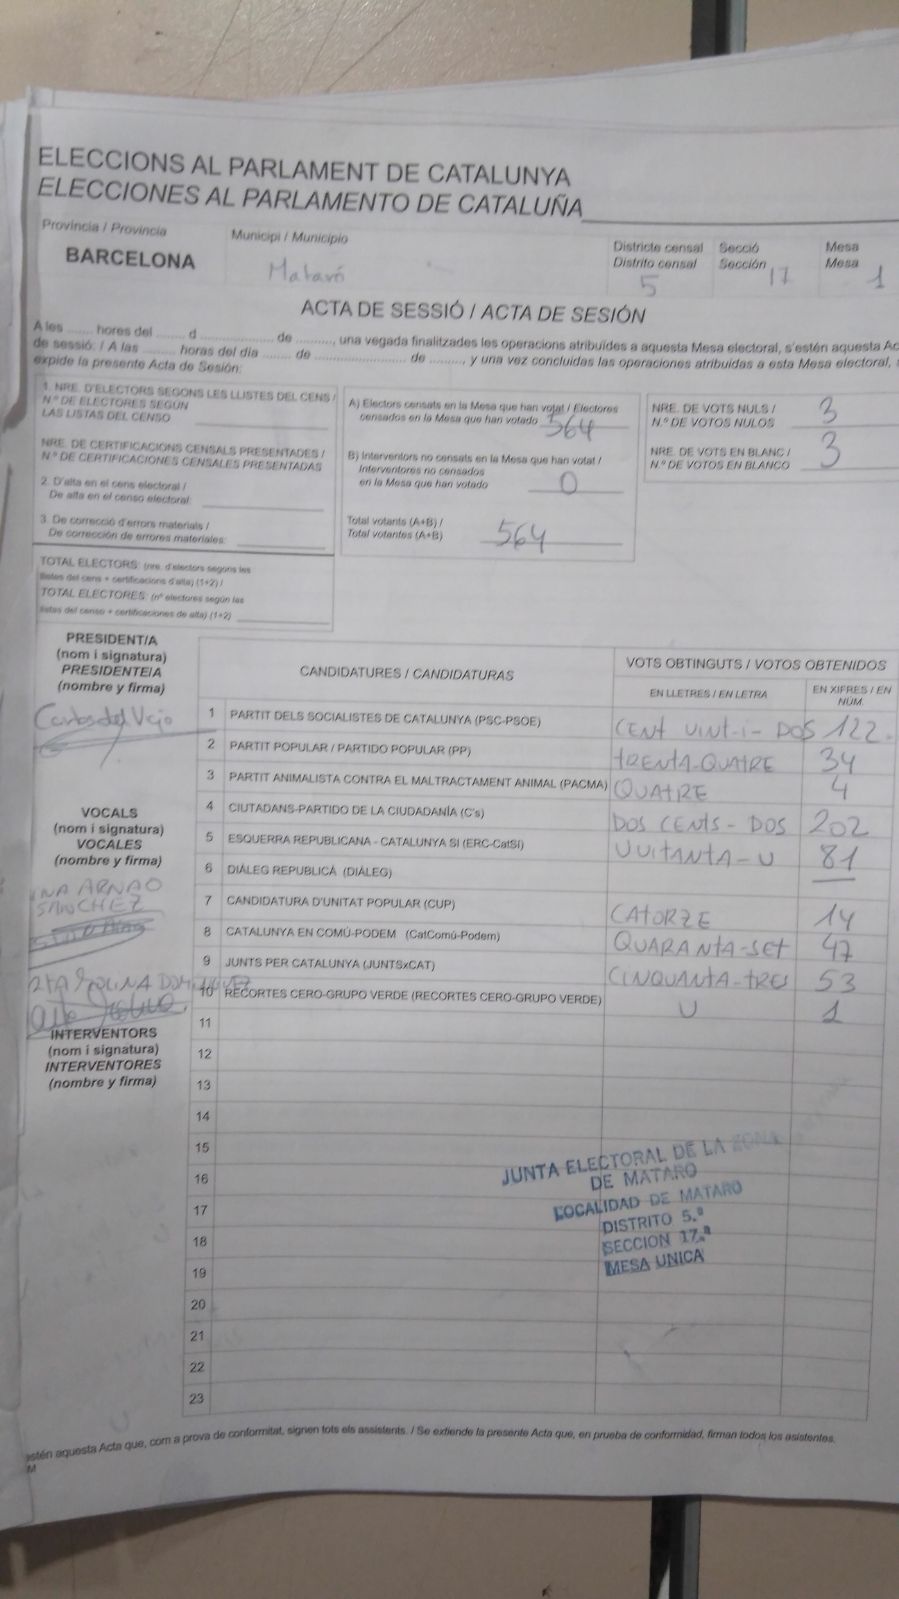 ELECCIONS AL PARLAMENT DE CATALUNYA
ELECCIONES AL PARLAMENTO DE CATALUÑA
Província / Provincia
BARCELONA
Municipi / Municipio
Mataró
Districte censal
Distrito censal
5
Secció
Sección
17
Mesa
Mesa
1
ACTA DE SESSIÓ / ACTA DE SESIÓN
A les ....... hores del ....... d ....................... de ........., una vegada finalitzades les operacions atribuïdes a aquesta Mesa electoral, s'estén aquesta
de sessió: / A las ........ horas del día ....... de ....................... de ........., y una vez concluidas las operaciones atribuidas a esta Mesa electoral,
expide la presente Acta de Sesión:
1. NRE. D'ELECTORS SEGONS LES LLISTES DEL CENS /
N.º DE ELECTORES SEGÚN
LAS LISTAS DEL CENSO
NRE. DE CERTIFICACIONS CENSALS PRESENTADES /
N.º DE CERTIFICACIONES CENSALES PRESENTADAS
2. D'alta en el cens electoral /
De alta en el censo electoral:
3. De correcció d'errors materials /
De corrección de errores materiales:
TOTAL ELECTORS: (nre. d'electors segons les
llistes del cens + certificacions d'alta) (1+2) /
TOTAL ELECTORES: (nº electores según las
listas del censo + certificaciones de alta) (1+2)
A) Electors censats en la Mesa que han votat / Electores
censados en la Mesa que han votado 564
B) Interventors no censats en la Mesa que han votat /
Interventores no censados
en la Mesa que han votado 0
Total votants (A+B) /
Total votantes (A+B) 564
NRE. DE VOTS NULS /
N.º DE VOTOS NULOS 3
NRE. DE VOTS EN BLANC /
N.º DE VOTOS EN BLANCO 3
PRESIDENT/A
(nom i signatura)
PRESIDENTE/A
(nombre y firma)
Carlos del Viejo
VOCALS
(nom i signatura)
VOCALES
(nombre y firma)
ARNAO
SANCHEZ
MOLINA
INTERVENTORS
(nom i signatura)
INTERVENTORES
(nombre y firma)
CANDIDATURES / CANDIDATURAS
VOTS OBTINGUTS / VOTOS OBTENIDOS
EN LLETRES / EN LETRA
EN XIFRES / EN
NÚM.
1 PARTIT DELS SOCIALISTES DE CATALUNYA (PSC-PSOE) CENT VINT-I-DOS 122.
2 PARTIT POPULAR / PARTIDO POPULAR (PP) TRENTA-QUATRE 34
3 PARTIT ANIMALISTA CONTRA EL MALTRACTAMENT ANIMAL (PACMA) QUATRE 4
4 CIUTADANS-PARTIDO DE LA CIUDADANÍA (C's) DOS CENTS-DOS 202
5 ESQUERRA REPUBLICANA - CATALUNYA SÍ (ERC-CatSí) VUITANTA-U 81
6 DIÀLEG REPUBLICÀ (DIÀLEG) —
7 CANDIDATURA D'UNITAT POPULAR (CUP) CATORZE 14
8 CATALUNYA EN COMÚ-PODEM (CatComú-Podem) QUARANTA-SET 47
9 JUNTS PER CATALUNYA (JUNTSxCAT) CINQUANTA-TRES 53
10 RECORTES CERO-GRUPO VERDE (RECORTES CERO-GRUPO VERDE) U 1
11
12
13
14
15
16
17
18
19
20
21
22
23
JUNTA ELECTORAL DE LA ZONA
DE MATARO
LOCALIDAD DE MATARO
DISTRITO 5.ª
SECCION 17.ª
MESA UNICA
estén aquesta Acta que, com a prova de conformitat, signen tots els assistents. / Se extiende la presente Acta que, en prueba de conformidad, firman todos los asistentes.